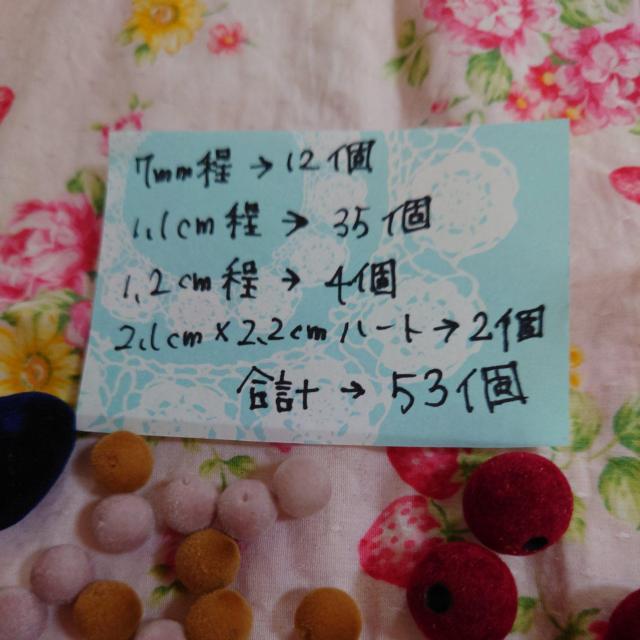 7mm程→12個
1,1cm程→35個
1,2cm程→4個
2,1cm×2,2cmハート→2個
合計→53個